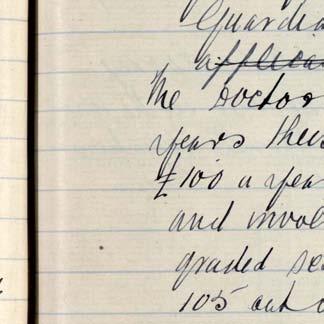 Guardia
applica
The Doctor
years the
£100 a yea
and invol
graded sc
105 out o